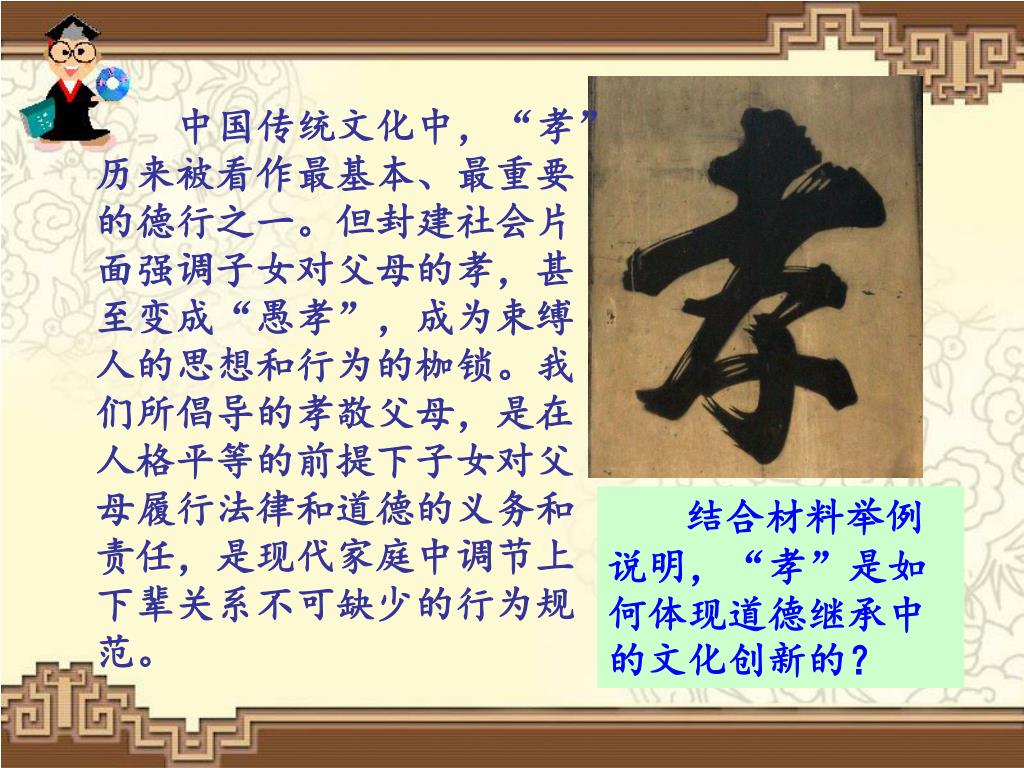 中国传统文化中，“孝”
历来被看作最基本、最重要
的德行之一。但封建社会片
面强调子女对父母的孝，甚
至变成“愚孝”，成为束缚
人的思想和行为的枷锁。我
们所倡导的孝敬父母，是在
人格平等的前提下子女对父
母履行法律和道德的义务和
责任，是现代家庭中调节上
下辈关系不可缺少的行为规
范。
孝
结合材料举例
说明，“孝”是如
何体现道德继承中
的文化创新的？